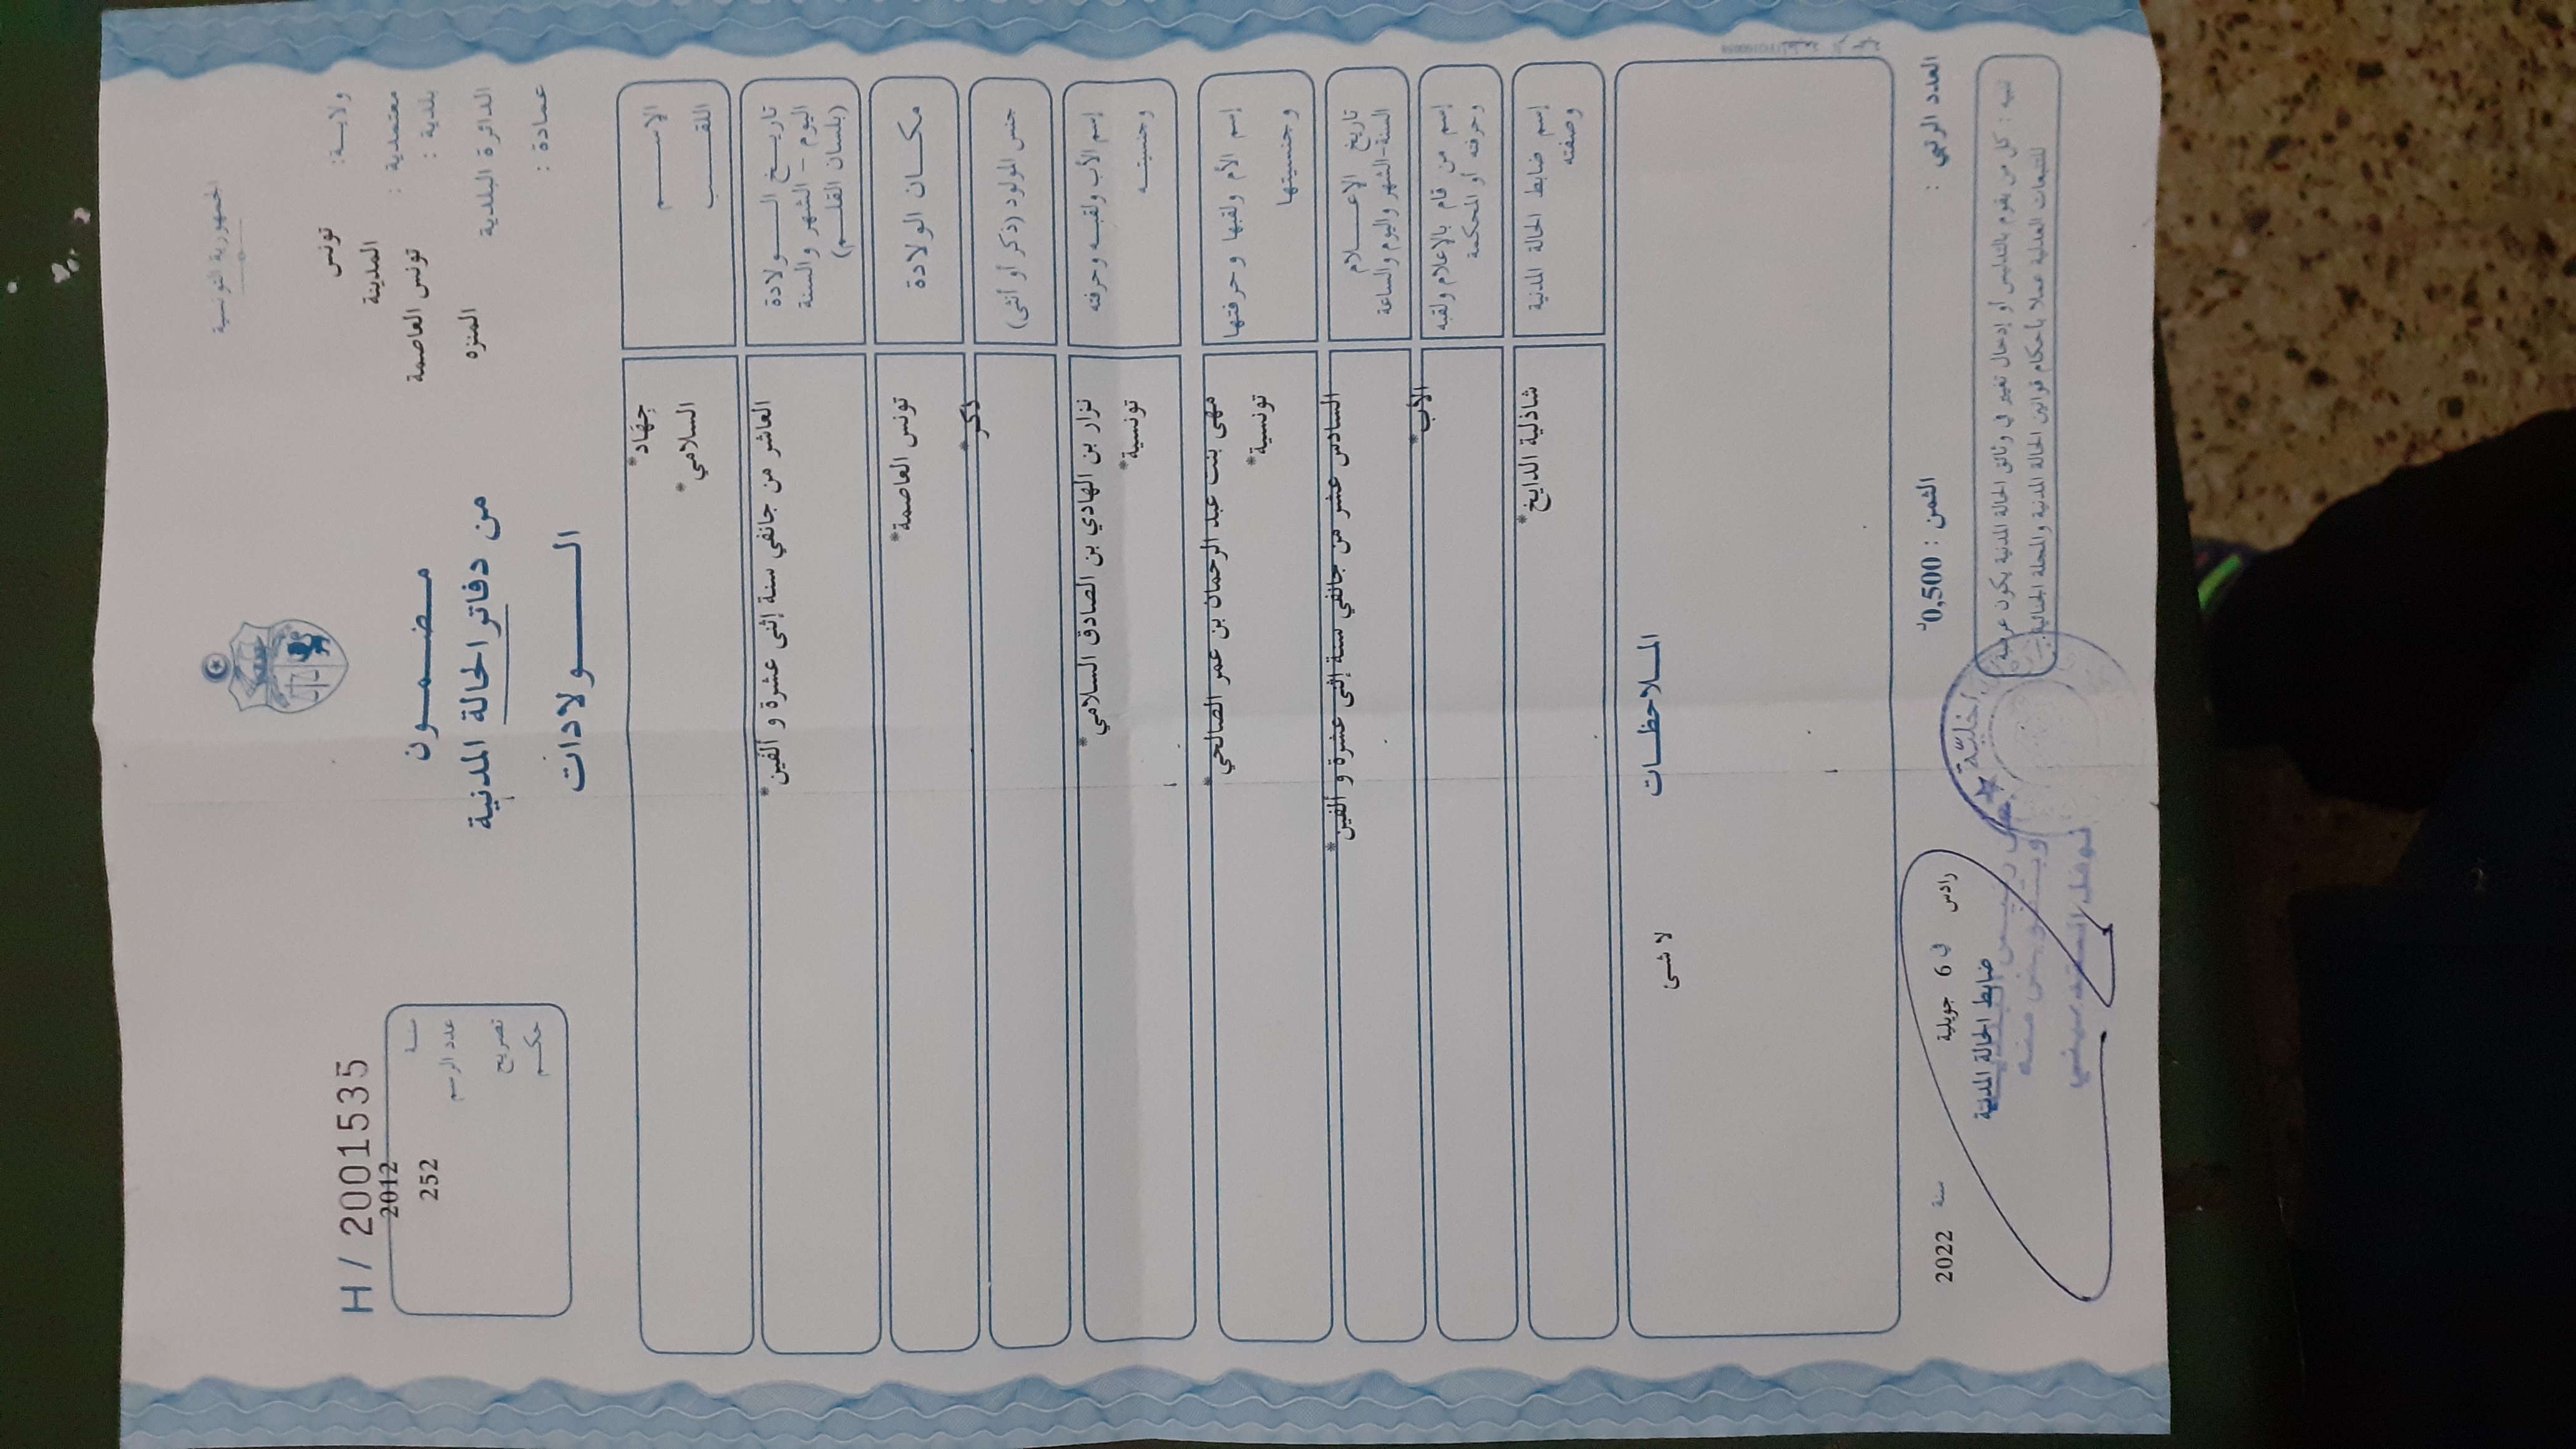 الجمهورية التونسية
ولايـة: تونس
معتمدية : المدينة
بلدية : تونس العاصمة
الدائرة البلدية المنزه
عمادة :
مـضـمـون
من دفاتر الحالة المدنية
الـــولادات
H / 2001535
سنـة 2012
عدد الرسم 252
تصريح
حكـم
الإســـم جِهَاد*
اللقـــب السلامي*
تاريــخ الـــولادة
اليوم - الشهر والسنة
(بلسان القلــم)
العاشر من جانفي سنة إثنى عشرة و ألفين*
مكــان الولادة تونس العاصمة*
جنس المولود (ذكر أو أنثى) ذكر*
إسم الأب ولقبـه وحرفته نزار بن الهادي بن الصادق السلامي*
وجنسيتـه تونسية*
إسم الأم ولقبها وحرفتها مهى بنت عبد الرحمان بن عمر الصالحي*
وجنسيتها تونسية*
تاريخ الإعـــلام
السنة-الشهر واليوم والساعة
السادس عشر من جانفي سنة إثنى عشرة و ألفين*
إسم من قام بالإعلام ولقبه
وحرفته أو المحكمة
الأب*
إسم ضابط الحالة المدنية
وصفته
شاذلية الدايخ*
الملاحظـات
لا شى
العدد الرتبي :
الثمن : 0,500د
رادس في 6 جويلية سنة 2022
ضابط الحالة المدنية
تنبيه : كل من يقوم بالتدليس أو إدخال تغيير في وثائق الحالة المدنية يكون عرضة
للتتبعات العدلية عملا بأحكام قوانين الحالة المدنية والمجلة الجنائية